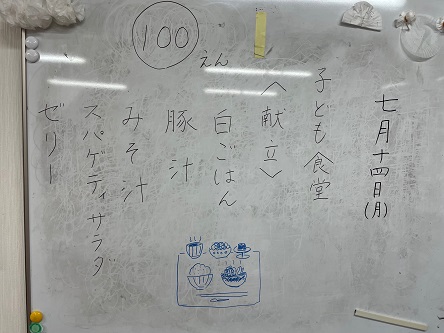 七月十四日(月)
子ども食堂
〈献立〉
白ごはん
豚汁
みそ汁
スパゲティサラダ
ゼリー
100えん